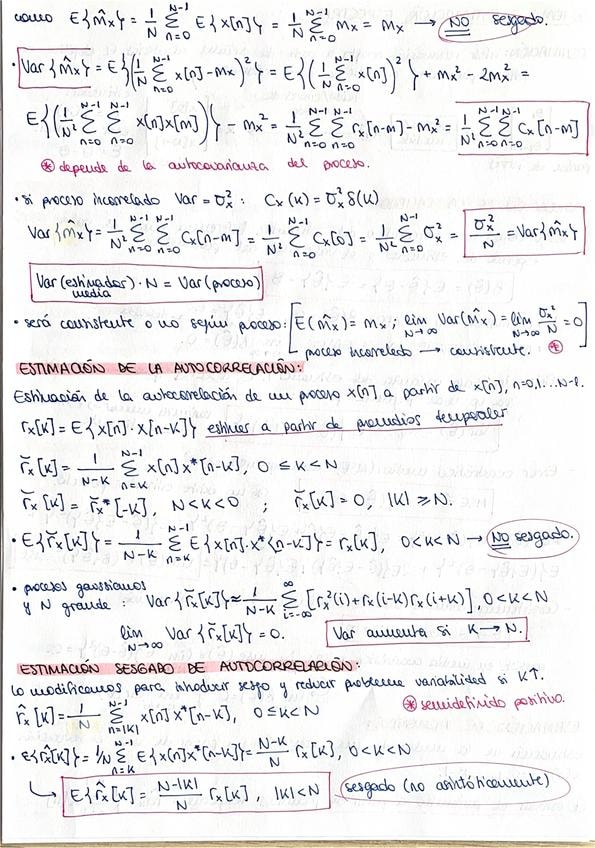 como E{m̂x} = 1/N Σ_{n=0}^{N-1} E{x[n]} = 1/N Σ_{n=0}^{N-1} mx = mx → NO sesgado.
· Var{m̂x} = E{(1/N Σ_{n=0}^{N-1} x[n]-mx)²} = E{(1/N Σ_{n=0}^{N-1} x[n])²} + mx² - 2mx² =
E{(1/N² Σ_{n=0}^{N-1} Σ_{n=0}^{N-1} x[n]x[m])} - mx² = 1/N² Σ_{n=0}^{N-1} Σ_{n=0}^{N-1} rx[n-m] - mx² = 1/N² Σ_{n=0}^{N-1} Σ_{n=0}^{N-1} Cx[n-m]
⊛ depende de la autocovarianza del proceso.
· si proceso incorrelado Var = σx² : Cx(k) = σx² δ(k)
Var{m̂x} = 1/N² Σ_{n=0}^{N-1} Σ_{n=0}^{N-1} Cx[n-m] = 1/N² Σ_{n=0}^{N-1} Cx[0] = 1/N² Σ_{n=0}^{N-1} σx² = σx²/N = Var{m̂x}
Var(estimador media) · N = Var(proceso)
· será consistente o no según proceso: [E(m̂x) = mx ; lim_{N→∞} Var(m̂x) = lim_{N→∞} σx²/N = 0
proceso incorrelado → consistente. ⊛]
ESTIMACIÓN DE LA AUTOCORRELACIÓN:
Estimación de la autocorrelación de un proceso x[n] a partir de x[n], n=0,1...N-1.
rx[k] = E{x[n]·x[n-k]} estimar a partir de promedios temporales
r̆x[k] = 1/(N-k) Σ_{n=k}^{N-1} x[n]x*[n-k], 0 ≤ k < N
r̆x[k] = r̆x*[-k], N<k<0 ; r̆x[k] = 0, |k| ≥ N.
· E{r̆x[k]} = 1/(N-k) Σ_{n=k}^{N-1} E{x[n]·x*{n-k]} = rx[k], 0<k<N → NO sesgado.
· procesos gaussianos
y N grande : Var{r̆x[k]} ≈ 1/(N-k) Σ_{i=-∞}^{∞} [rx²(i)+rx(i-k)rx(i+k)] 0<k<N
lim_{N→∞} Var{r̆x[k]} = 0. Var aumenta si k → N.
ESTIMACIÓN SESGADO DE AUTOCORRELACIÓN:
lo modificamos para introducir sesgo y reducir problema variabilidad si k↑.
r̂x[k] = 1/N Σ_{n=|k|}^{N-1} x[n]x*[n-k], 0≤k<N ⊛ semidefinido positivo.
· E{r̂x[k]} = 1/N Σ_{n=k}^{N-1} E{x[n]x*[n-k]} = (N-k)/N rx[k], 0<k<N
↳ E{r̂x[k] = (N-|k|)/N rx[k], |k|<N sesgado (no asintóticamente)